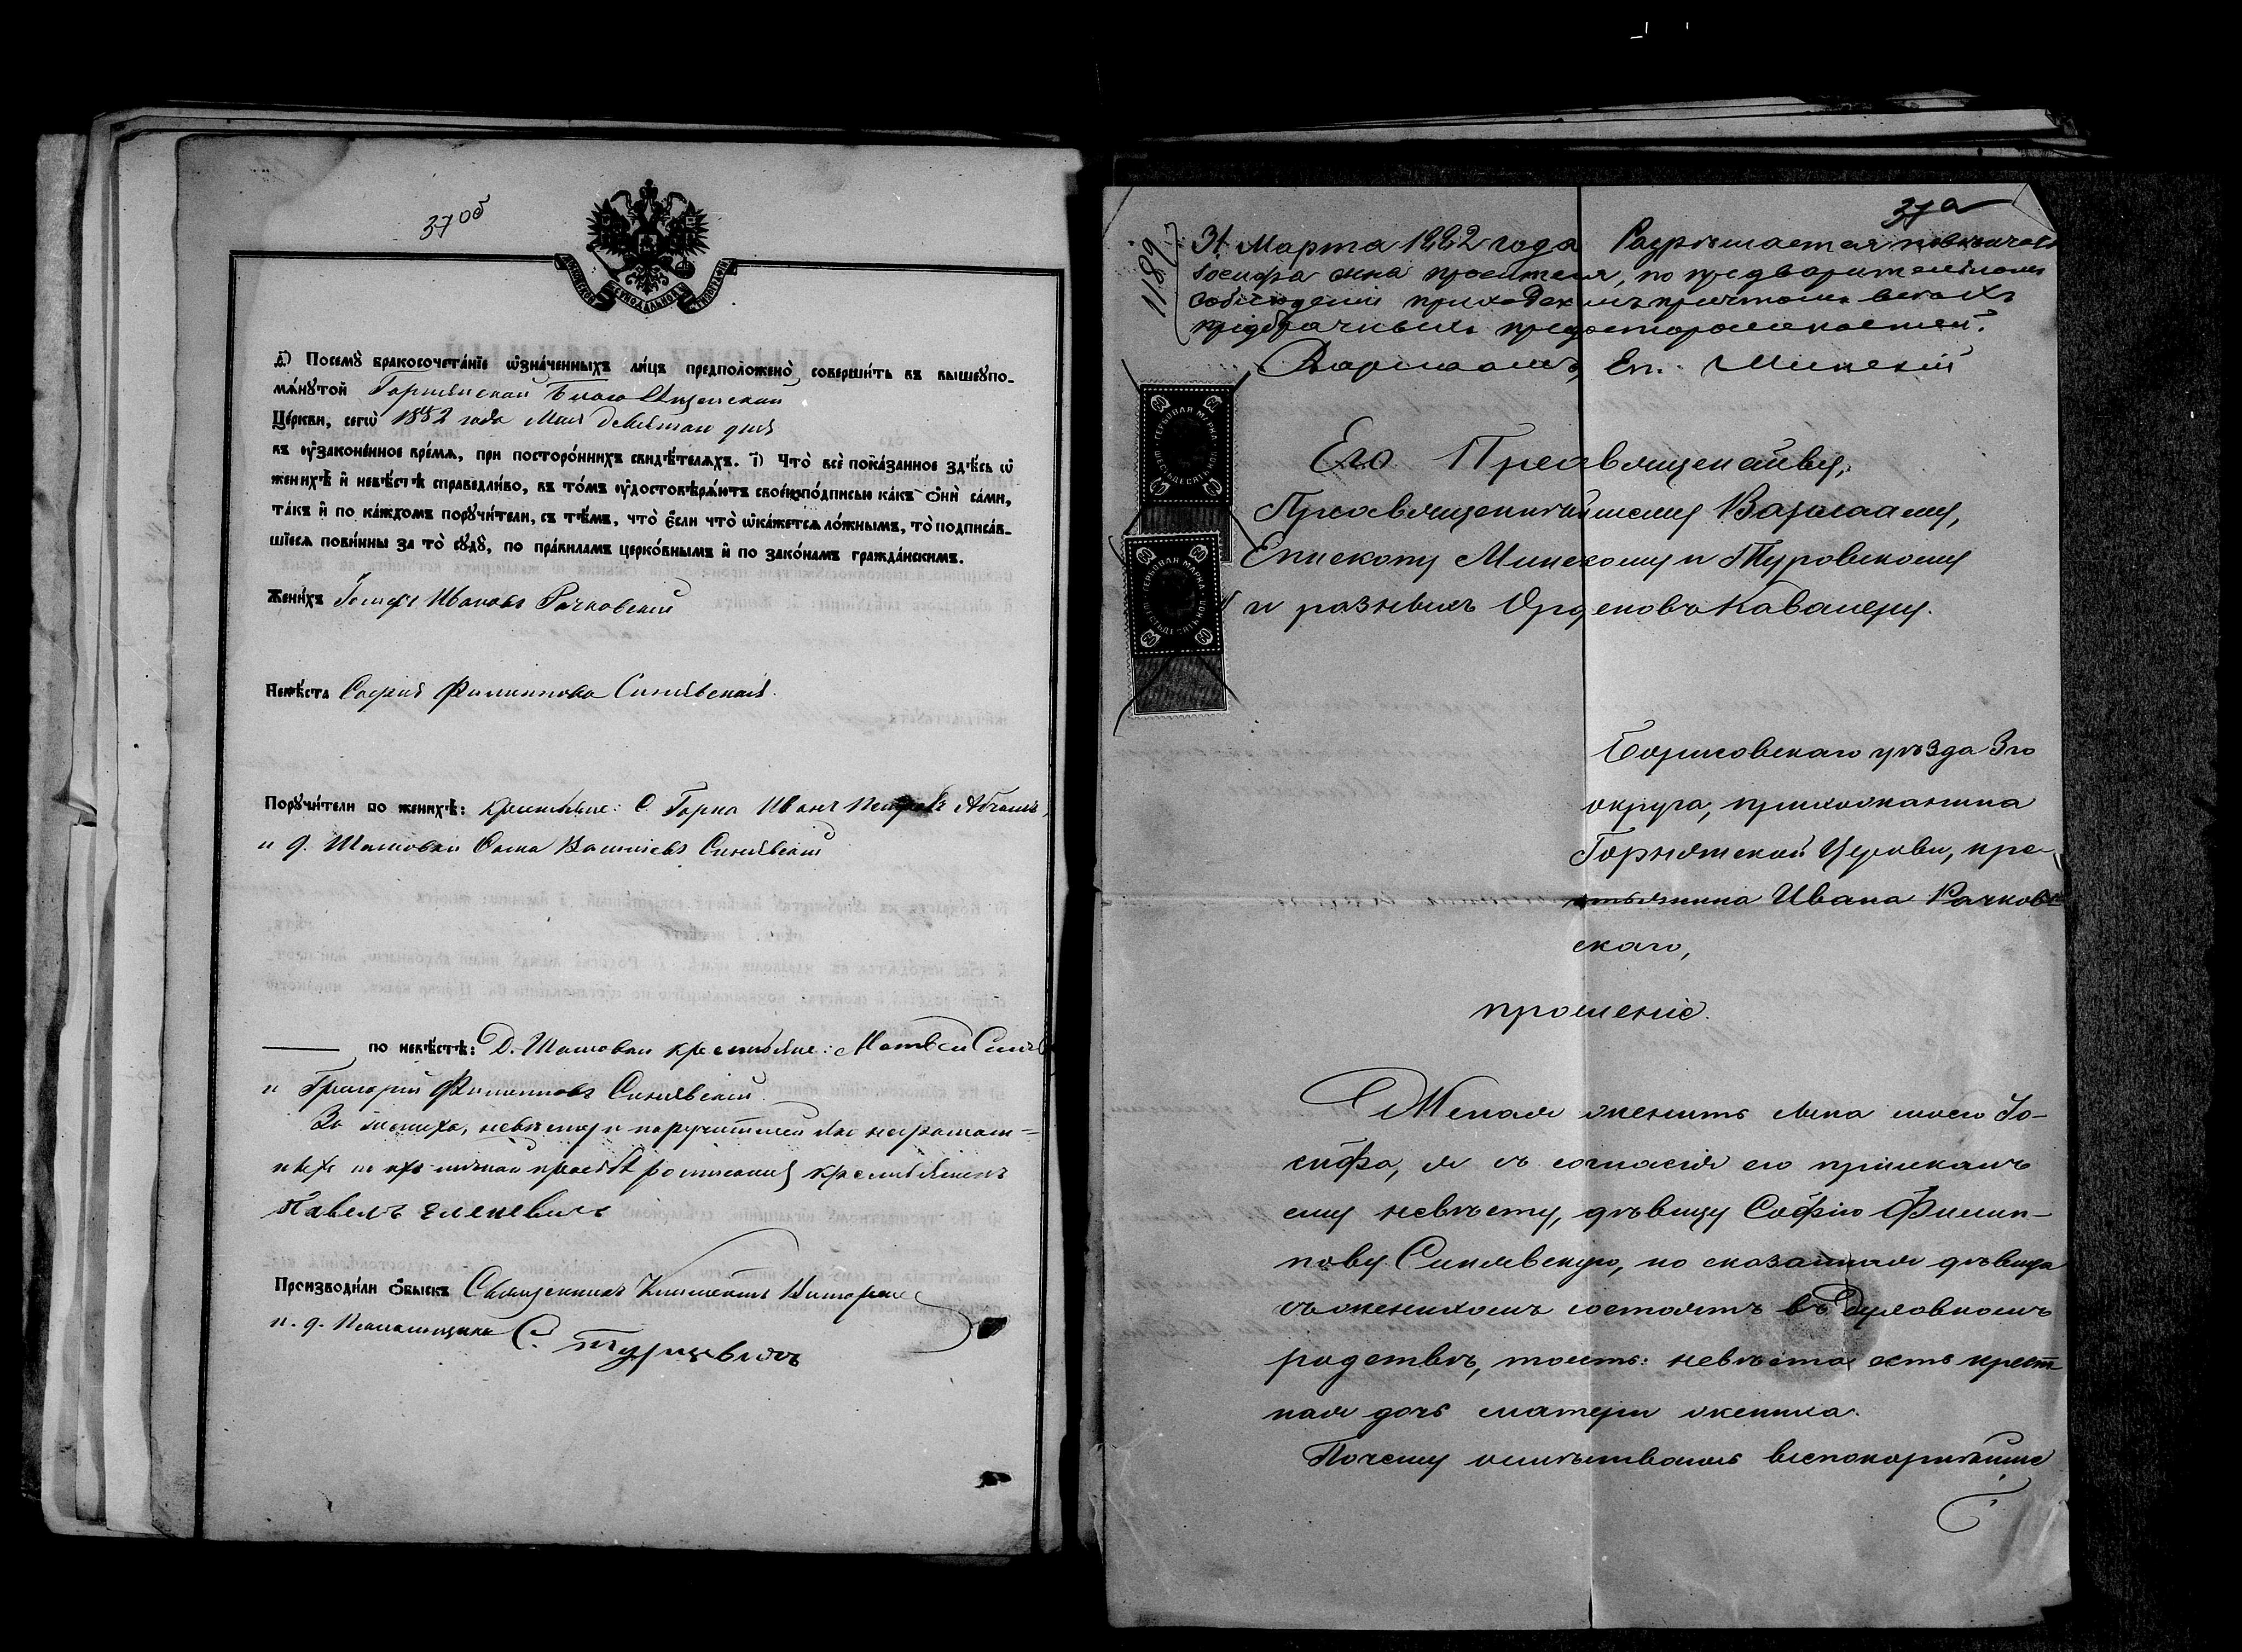 37об
СѴНОДАЛЬНОЙ
д҃) Посемꙋ̀ бракосочета́нїе ѡ҆зна́ченныхъ ли́цъ предположено̀ соверши́ть въ вышеꙋпо-
мѧ́нꙋтой Горнянской Благовѣщенской
Це́ркви, сегѡ̀ 1882 года Мая девятаго дня
въ ᲂу҆зако́нённое вре́мѧ, при посторо́ннихъ свидѣ́телѧхъ. і҃) Что̀ всѐ пока́занное здѣ́сь ѡ҆
женихѣ̀ и҆ невѣ́стѣ справедли́во, въ то́мъ ᲂу҆достовѣрѧ́ютъ свое́ю по́дписью ка́къ ѻ҆нѝ са́ми,
та́къ и҆ по ка́ждомъ порꙋчи́тели, съ тѣ́мъ, что̀ є҆́сли что̀ ѡ҆ка́жетсѧ ло́жнымъ, то̀ подписа́в-
шїесѧ пови́нны за то̀ сꙋдꙋ̀, по пра́виламъ церко́внымъ и҆ по зако́намъ гражда́нскимъ.
Жени́хъ Іосифъ Ивановъ Рачковскій
Невѣ́ста Софія Филиппова Синявская.
Порꙋчи́тели по женихѣ̀: крестьяне: С. Горна Иванъ
и д. Шамовки Сава Васильевъ Синявскій
по невѣ́стѣ: Д. Шамовки крестьяне: Матвей
и Григорій Филипповъ Синявскій.
За жениха, невѣсту и поручителей яко неграмот-
ныхъ по ихъ личной просьбѣ росписался крестьянинъ
Павелъ Еленевичъ
Производи́ли ѻ҆́быскъ Священникъ Климентъ
и. д. Псаломщика С. Турцевичъ
37а
1189
31 Марта 1882 года Разрѣшается повѣнчать
Іосифа сына просителя, по предварительномъ
соблюденіи приходскимъ причтомъ всѣхъ
предбрачныхъ предосторожностей.
Варлаамъ, Еп. Минскій
ГЕРБОВАЯ МАРКА
ШЕСТЬДЕСЯТЬ КОП.
60
ГЕРБОВАЯ МАРКА
ШЕСТЬДЕСЯТЬ КОП.
60
Его Преосвященству,
Преосвященнѣйшему Варлааму,
Епископу Минскому и Туровскому
и разныхъ Орденовъ Кавалеру.
Борисовскаго уѣзда 3го
округа, прихожанина
Горнянской Церкви, кре-
стьянина Ивана Рачков-
скаго,
прошеніе.
Желая женить сына моего Іо-
сифа, я съ согласія его пріискалъ
ему невѣсту, дѣвицу Софію Филип-
пову Синявскую, но сказанная дѣвица
съ женихомъ состоятъ въ духовномъ
родствѣ, тоесть: невѣста есть крест-
ная дочь матери жениха.
Почему осмѣливаюсь всепокорнѣйше